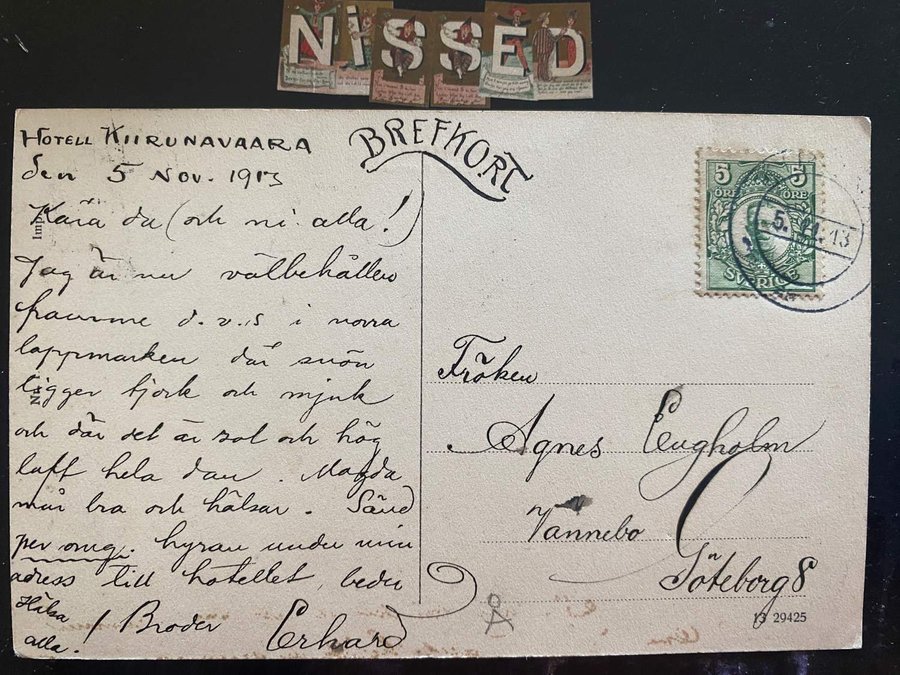 NiSSED
HOTELL KIIRUNAVAARA
den 5 Nov. 1913
Kära du (och ni alla!)
Jag är nu välbehållen
framme d.v.s i norra
lappmarken där snön
ligger tjock och mjuk
och där det är sol och hög
luft hela dan. Magda
mår bra och hälsar. Sänd
per omg. hyran under min
adress till hotellet, beder
Hälsa
alla! Broder Erhard
BREFKORT
5 5
ÖRE ÖRE
SVERIGE
5. 11. 13
Fröken
Agnes Engholm
Vannebo
Göteborg 8
13 29425